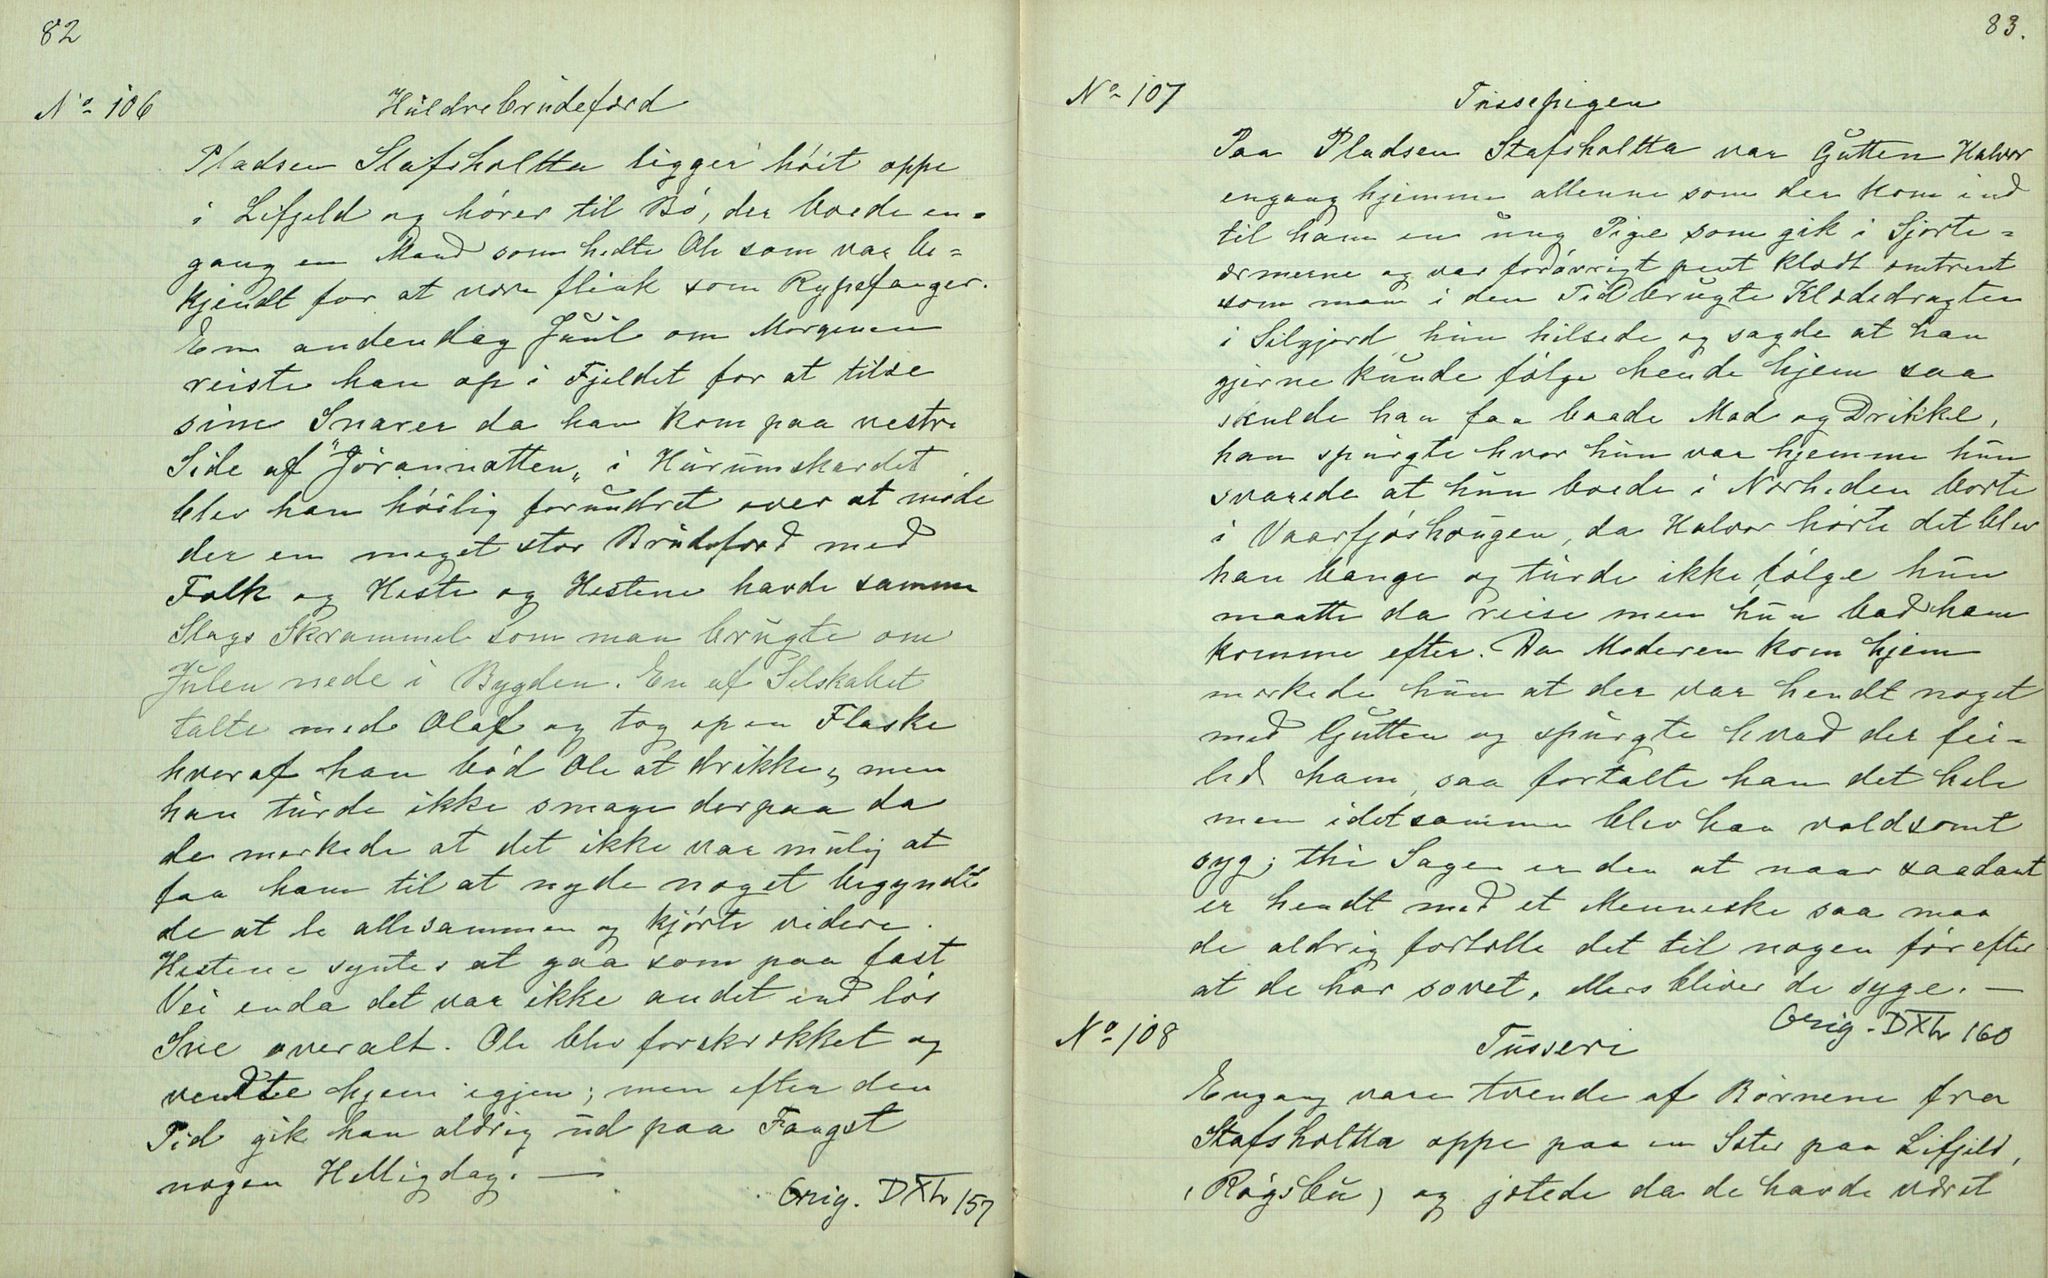 82
No 106 Huldrebrudefærd
Pladsen Stafsholtta ligger höit oppe
i Lifjeld og hörer til Bö, der boede en-
gang en Mand som hedte Ole som var be-
kjendt for at være flink som Rypefanger.
Em andendag Juul om Morgenen
reiste han op i Fjeldet for at tilse
sine Snarer da han kom paa vestre
Side af "Jörannatten" i Hurumskardet
blev han höilig forundret over at möde
der en meget stor Brudefærd med
Folk og Heste og Hestene havde samme
Slags Skrammel som man brugte om
Julen nede i Bygden. En af Selskabet
talte med Olaf og tog op en Flaske
hvoraf han böd Ole at drikke, men
han turde ikke smage derpaa da
de merkede at det ikke var mulig at
faa ham til at nyde noget begyndte
de at le allesammen og kjörte videre.
Hestene syntes at gaa som paa fast
Vei enda det var ikke andet end lös
Sne overalt. Ole blev forskrækket og
vendte hjem igjen; men efter den
Tid gik han aldrig ud paa Fangst
nogen Helligdag. —
Orig. D XIV 157
83.
No 107 Tussepigen
Paa Pladsen Stafsholtta var Gutten Halvor
engang hjemme allenne som der kom ind
til ham en ung Pige som gik i Sjorte-
ærmerne og var forövrigt pent klædt omtrent
som man i den Tid brugte Klædedragten
i Silgjord hun hilsede og sagde at han
gjerne kunde fölge hende hjem saa
skulde han faa baade Mad og Drikke,
han spurgte hvor hun var hjemme hun
svarede at hun boede i Nærheden borte
i Vaarfjöshougen, da Halvor hörte det blev
han bange og turde ikke fölge hun
maatte da reise men hun bad ham
komme efter. Da Moderen kom hjem
merkede hun at der var hendt noget
med Gutten og spurgte hvad der fei-
led ham, saa fortalte han det hele
men idetsamme blev han voldsomt
syg; thi Sagen er den at naar saadant
er hendt med et Menneske saa maa
de aldrig fortelle det til nogen för efter
at de har sovet, ellers bliver de syge. —
Orig. D XIV 160
No 108 Tusseri
Engang vare tvende af Börnene fra
Stafsholtta oppe paa en Sæter paa Lifjeld,
(Rögsbu) og jætede da de havde været